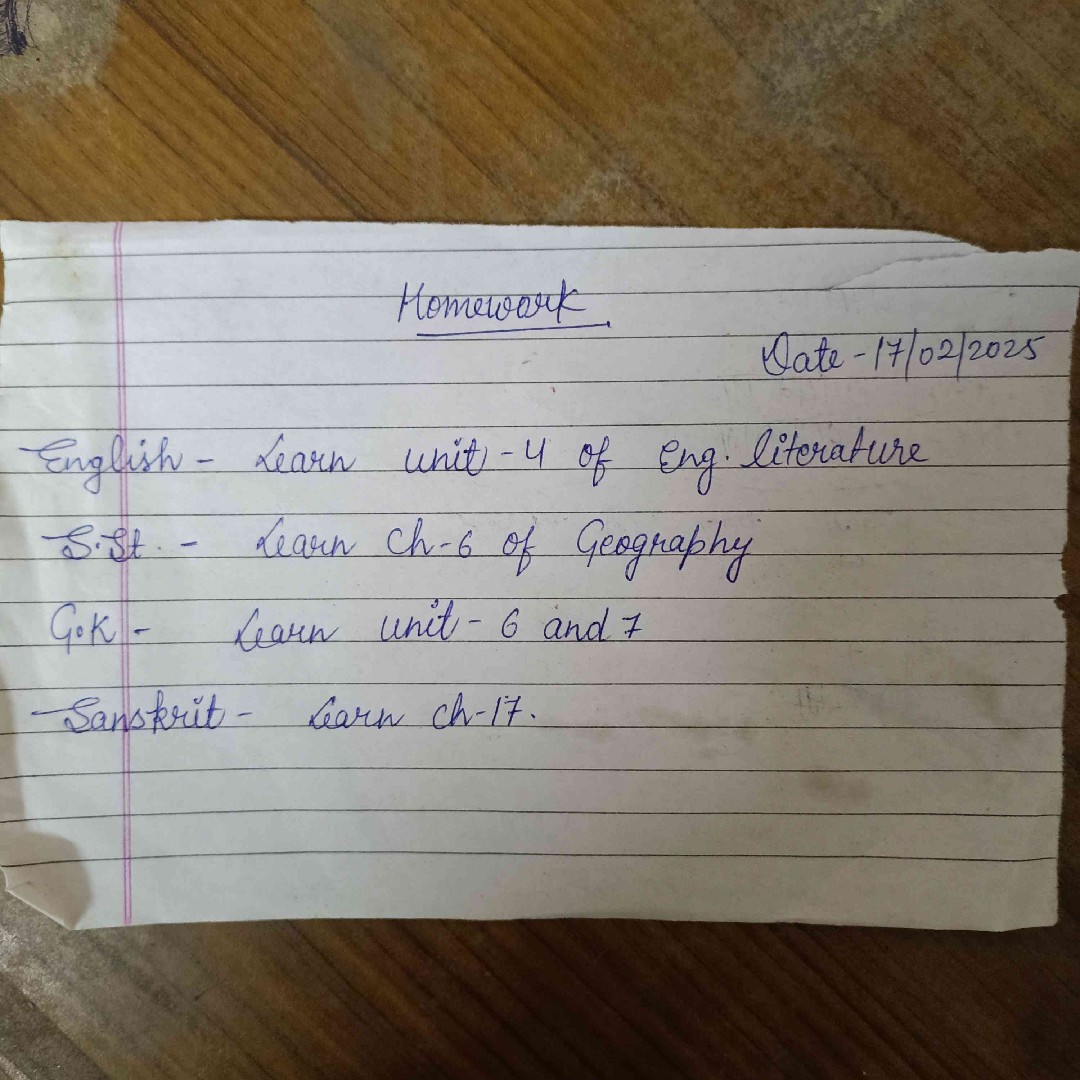 Homework
Date - 17/02/2025
English - Learn unit - 4 of Eng. literature
S.St. - Learn Ch-6 of Geography
G.K - Learn unit - 6 and 7
Sanskrit - Learn ch-17.